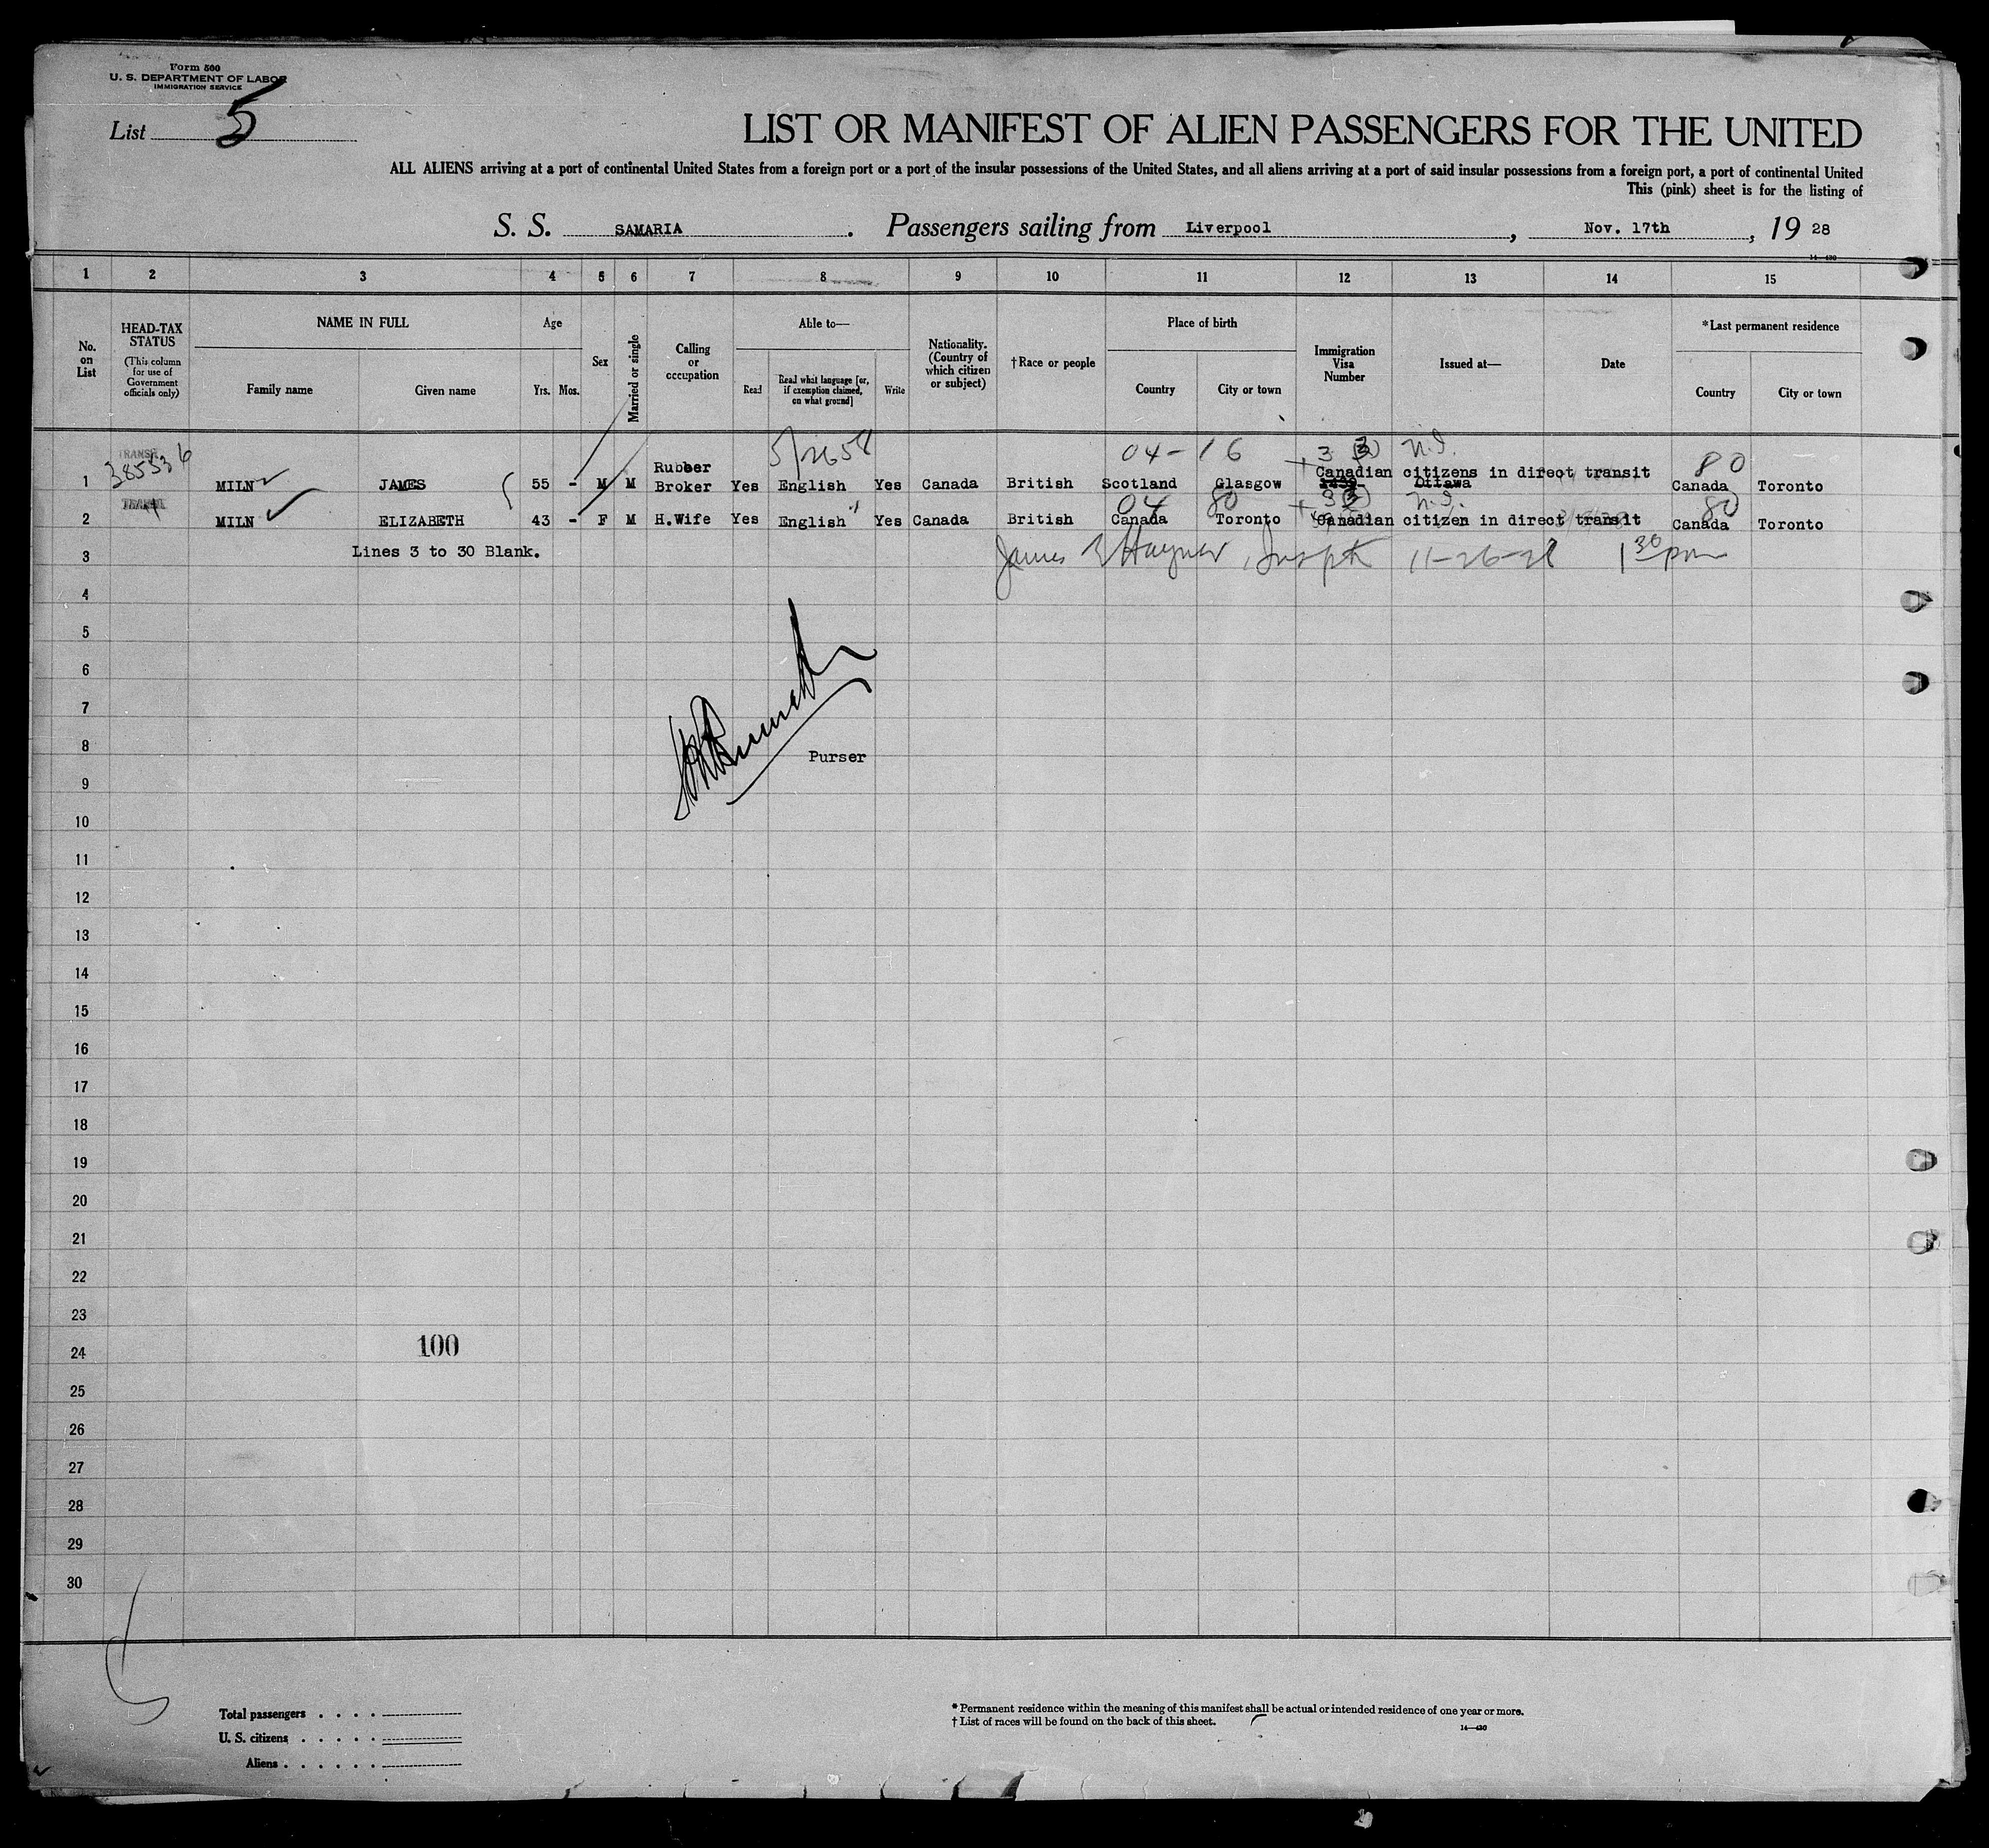 Form 500
U. S. DEPARTMENT OF LABOR
IMMIGRATION SERVICE
List 5
LIST OR MANIFEST OF ALIEN PASSENGERS FOR THE UNITED
ALL ALIENS arriving at a port of continental United States from a foreign port or a port of the insular possessions of the United States, and all aliens arriving at a port of said insular possessions from a foreign port, a port of continental United
This (pink) sheet is for the listing of
S. S. SAMARIA. Passengers sailing from Liverpool, Nov. 17th, 19 28
14—430
1 2 3 4 5 6 7 8 9 10 11 12 13 14 15
No. on List
HEAD-TAX STATUS
(This column for use of Government officials only)
NAME IN FULL
Family name Given name
Age
Yrs. Mos.
Sex
Married or single
Calling or occupation
Able to—
Read Read what language [or, if exemption claimed, on what ground] Write
Nationality. (Country of which citizen or subject)
†Race or people
Place of birth
Country City or town
Immigration Visa Number
Issued at—
Date
*Last permanent residence
Country City or town
TRANSIT
385536 04-16 3 (3) N.I. 80
1 MILN JAMES 55 - M M Rubber Broker Yes English Yes Canada British Scotland Glasgow Canadian citizens in direct transit Ottawa Canada Toronto
TRANSIT 04 80 3(3) N.I. 80
2 MILN ELIZABETH 43 - F M H.Wife Yes English " Yes Canada British Canada Toronto Canadian citizen in direct transit Canada Toronto
3 Lines 3 to 30 Blank. James 11-26-28 1 30 pm
4
5
6
7
8 Purser
9
10
11
12
13
14
15
16
17
18
19
20
21
22
23
24 100
25
26
27
28
29
30
Total passengers . . . .
U. S. citizens . . . . .
Aliens . . . . . .
* Permanent residence within the meaning of this manifest shall be actual or intended residence of one year or more.
† List of races will be found on the back of this sheet.
14—430